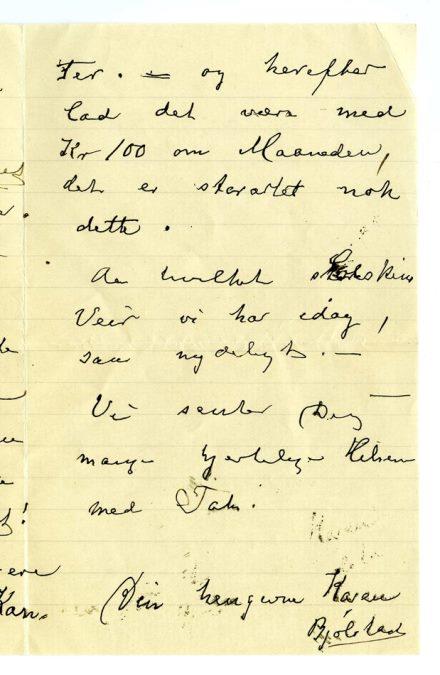 Fer. — og herefter
lad det være med
Kr 100 om Maaneden,
det er storartet nok
dette.
Aa hvilket solskins
Veir vi har idag,
saa nydeligt. —
Vi sender Dig
mange hjertelige Hilsen
med Tak.
Din hengivne Karen
Bjölstad
ere
Kan-